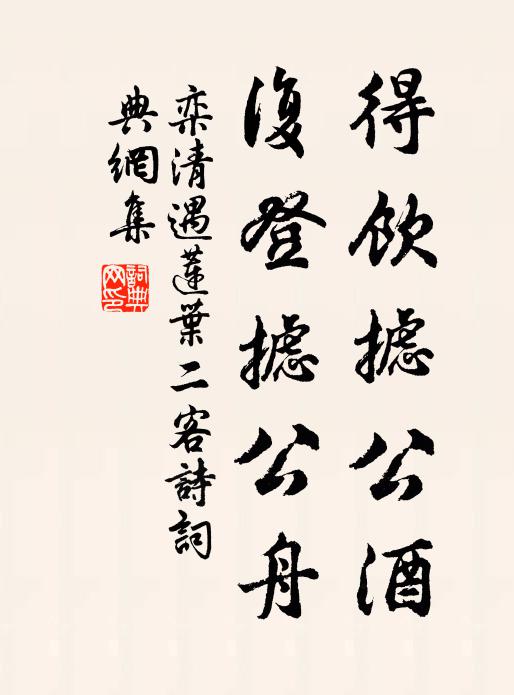 得飲摅公酒
復登摅公舟
栾清遇蓮葉二客詩詞
典網集
詞典網印